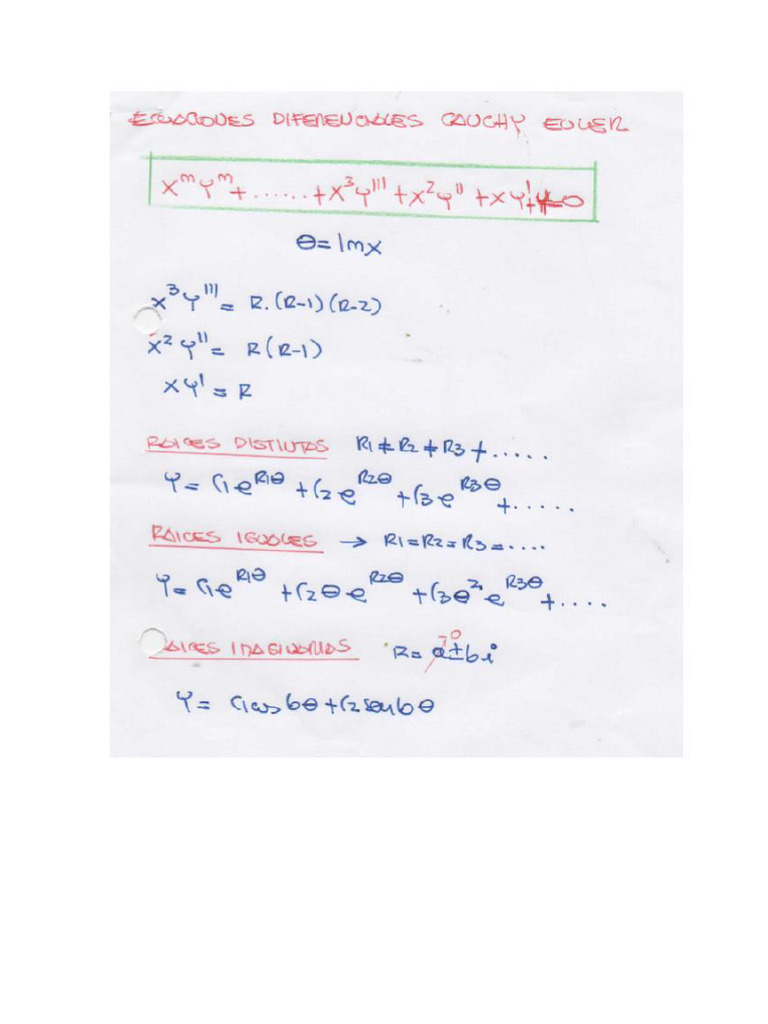 ECUACIONES DIFERENCIALES CAUCHY EULER
x^m y^m + ...... + x^3 y''' + x^2 y'' + x y' + y = 0
θ = ln x
x^3 y''' = R.(R-1)(R-2)
x^2 y'' = R(R-1)
x y' = R
RAICES DISTINTAS R1 ≠ R2 ≠ R3 ≠ .....
y = C1 e^R1θ + C2 e^R2θ + C3 e^R3θ + .....
RAICES IGUALES → R1 = R2 = R3 = ....
y = C1 e^R1θ + C2 θ e^R2θ + C3 θ^2 e^R3θ + ....
RAICES IMAGINARIAS R = a ± bi 0
y = C1 cos bθ + C2 sen bθ